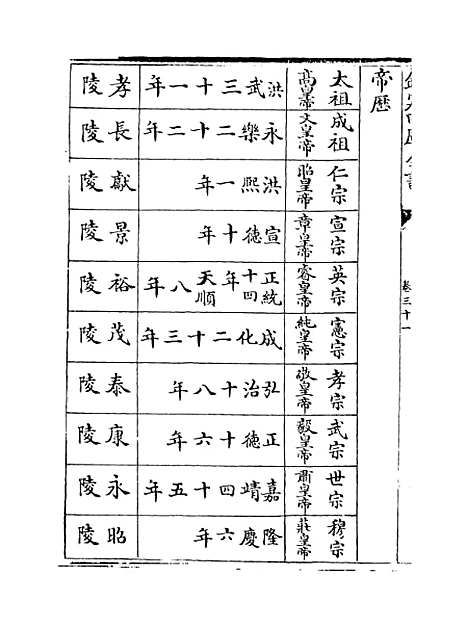 卷三十一
帝暦
太祖 高皇帝 洪武三十一年 孝陵
成祖 文皇帝 永樂二十二年 長陵
仁宗 昭皇帝 洪熙一年 獻陵
宣宗 章皇帝 宣德十年 景陵
英宗 睿皇帝 正統十四年 天順八年 裕陵
憲宗 純皇帝 成化二十三年 茂陵
孝宗 敬皇帝 弘治十八年 泰陵
武宗 毅皇帝 正德十六年 康陵
世宗 肅皇帝 嘉靖四十五年 永陵
穆宗 莊皇帝 隆慶六年 昭陵